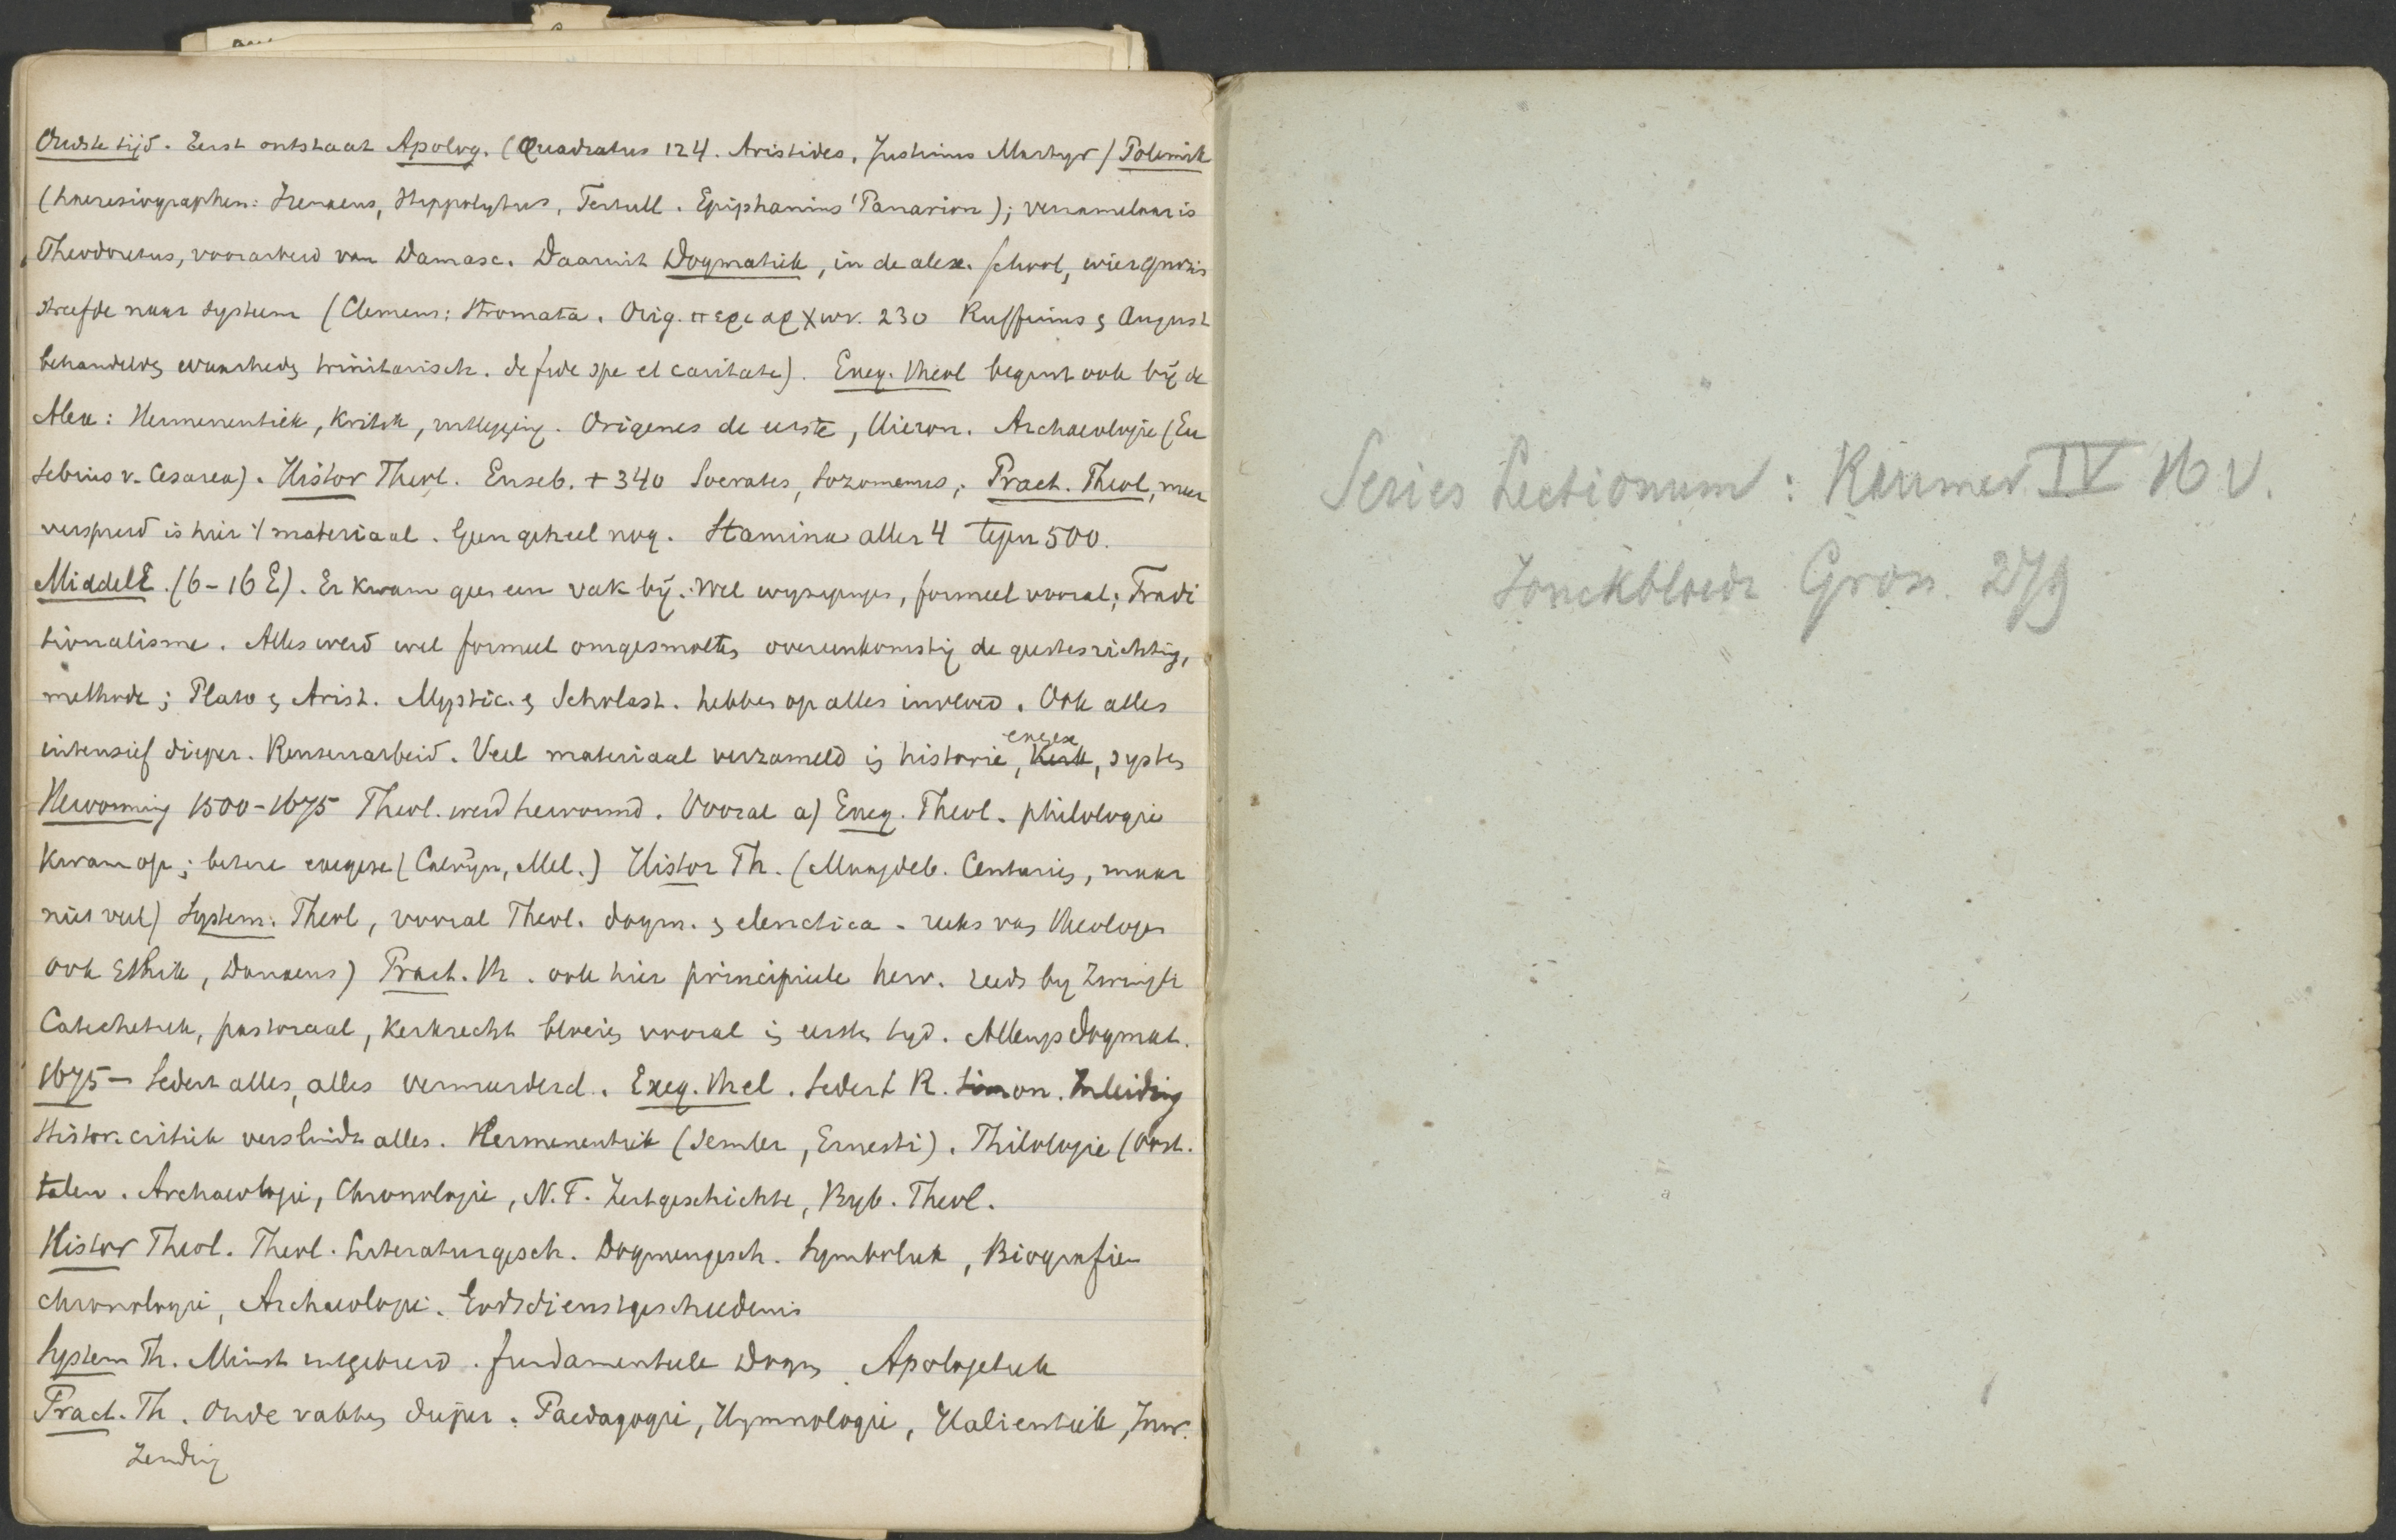 Oudste tijd. Eerst ontstaat Apolog. (Quadratus 124. Aristides, Justinus Martyr) Polemiek
(haeresiographen: Irenaeus, Hippolytus, Tertull. Epiphanius' Panarion); verzamelaar is
Theodoretus, voorarbeid van Damasc. Daaruit Dogmatiek, in de alex. school, wier gnosis
streefde naar systeem (Clemens: Stromata. Orig. περι αρχων. 230 Ruffinus & August
behandelde waarheid trinitarisch. de fide spe et caritate). Exeg. theol begint ook bij de
Alex: Hermeneutiek, kritiek, uitlegging. Origenes de eerste, Hieron. Archaeologie (Eu
sebius v. Cesarea). Histor Theol. Euseb. + 340 Socrates, Sozomenus, Pract. Theol, meer
verspreid is hier 't materiaal. Geen geheel nog. Stamina aller 4 tegen 500.
MiddelE. (6-16 E). Er kwam geen een vak bij. Wel wijzigingen, formeel vooral; Tradi
tionalisme. Alles werd wel formeel omgesmolten overeenkomstig de geestesrichting,
methode; Plato & Arist. Mystic. & Scholast. hebben op alles invloed. Ook alles
intensief dieper. Reuzenarbeid. Veel materiaal verzameld in historie, exegese, Kerk, system
Hervorming 1500-1675 Theol. werd hervormd. Vooral a) Exeg. Theol. philologie
kwam op; betere exegese (Calvijn, Mel.) Histor Th. (Maagdeb. Centuriën, maar
niet veel) System. Theol, vooral Theol. dogm. & elenctica. reeks van theologen
ook Ethik, Danaeus) Pract. th. ook hier principieele herv. reeds bij Zwingli
Catechetiek, pastoraal, kerkrecht bloeien vooral in eersten tijd. Allengs dogmat.
1675 - Sedert alles, alles veranderd. Exeg. theol. Sedert R. Simon. Inleiding
Histor. critiek verslindt alles. Hermeneutiek (Semler, Ernesti). Philologie (Oost.
talen. Archaeologie, Chronologie, N.T. Zeitgeschichte, Bijb. Theol.
Histor Theol. Theol. Literaturgesch. Dogmengesch. Symboliek, Biografie
chronologie, Archaeologie. Godsdienstgeschiedenis
System Th. Minst uitgebreid. fundamenteele Dogm Apologetiek
Pract. Th. Oude vakken dieper. Paedagogie, Hymnologie, Halieutiek, Inw.
Zending
Series Lectionum: Kamer IV 16 V.
Jonckbloedt Gron. 279